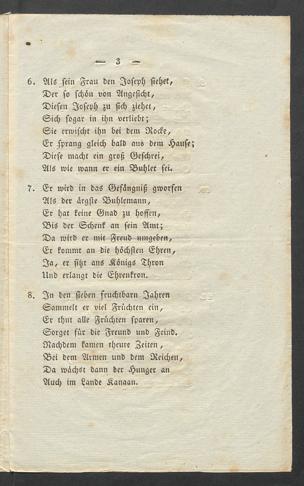 — 3 —
6. Als sein Frau den Joseph siehet,
Der so schön von Angesicht,
Diesen Joseph zu sich ziehet,
Sich sogar in ihn verliebt;
Sie erwischt ihn bei dem Rocke,
Er sprang gleich bald aus dem Hause;
Diese macht ein groß Geschrei,
Als wie wann er ein Buhler sei.
7. Er wird in das Gefängniß gworfen
Als der ärgste Buhlemann,
Er hat keine Gnad zu hoffen,
Bis der Schenk an sein Amt;
Da wird er mit Freud umgeben,
Er kommt an die höchsten Ehren,
Ja, er sitzt ans Königs Thron
Und erlangt die Ehrenkron.
8. In den sieben fruchtbarn Jahren
Sammelt er viel Früchten ein,
Er thut alle Früchten sparen,
Sorget für die Freund und Feind.
Nachdem kamen theure Zeiten,
Bei dem Armen und dem Reichen,
Da wächst dann der Hunger an
Auch im Lande Kanaan.